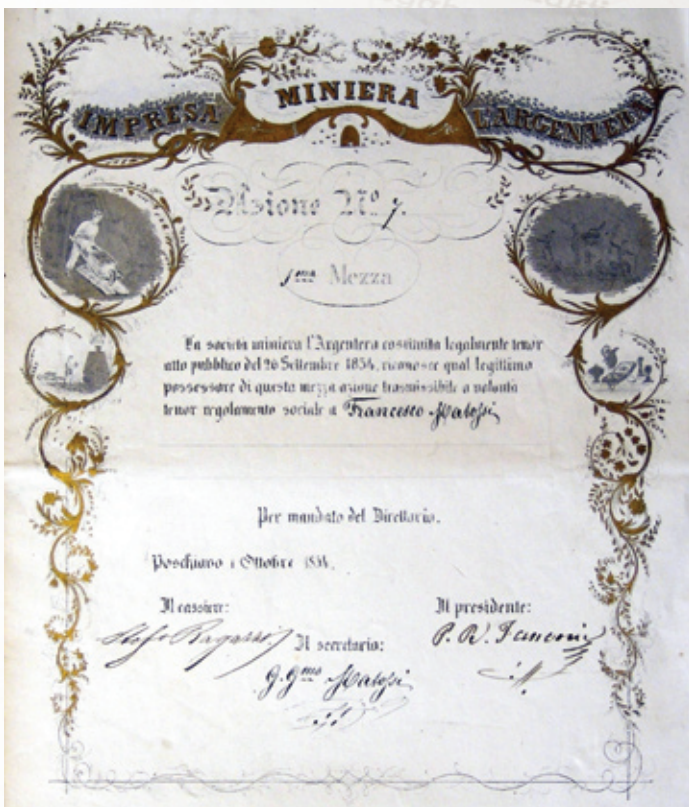 IMPRESA MINIERA L'ARGENTERA
Azione Nº 7.
1ma Mezza
La società miniera l'Argentera costituita legalmente tenor
atto pubblico del 26 Settembre 1834, riconosce qual legittimo
possessore di questa mezza azione trasmissibile a volontà
tenor regolamento sociale a Francesco
Per mandato del Direttorio.
Poschiavo 1 Ottobre 1834.
Il cassiere: Il presidente:
Ragazzi Il secretario: P.
G. Gmo